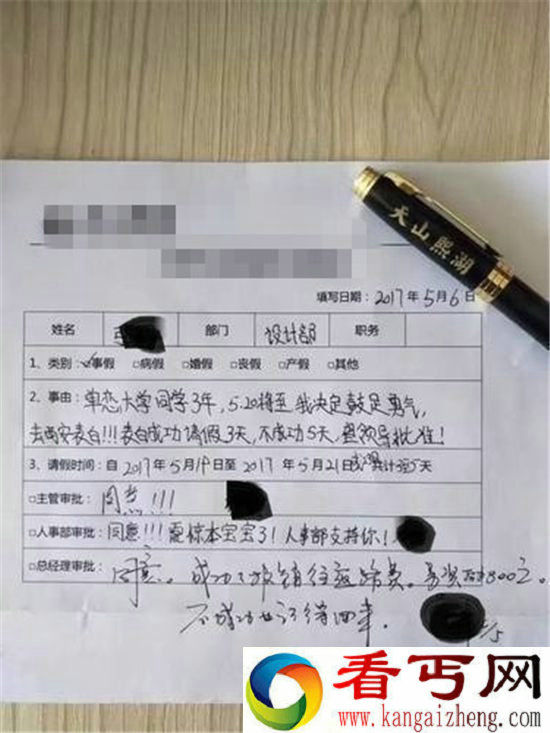 天山熙湖
填写日期：2017年5月6日
姓名 部门 设计部 职务
1、类别：☑事假 □病假 □婚假 □丧假 □产假 □其他
2、事由：单恋大学同学3年，5.20将至我决定鼓足勇气，
去西安表白!!!表白成功请假3天，不成功5天，望领导批准！
3、请假时间：自2017年5月19日至2017年5月21日或累计至5天
□主管审批：同意!!!
□人事部审批：同意!!!震惊本宝宝了！人事部支持你！
□总经理审批：同意。成功了报销往返路费。另奖800元。
不成功也记得回来.
看丐网
www.kangaizheng.com